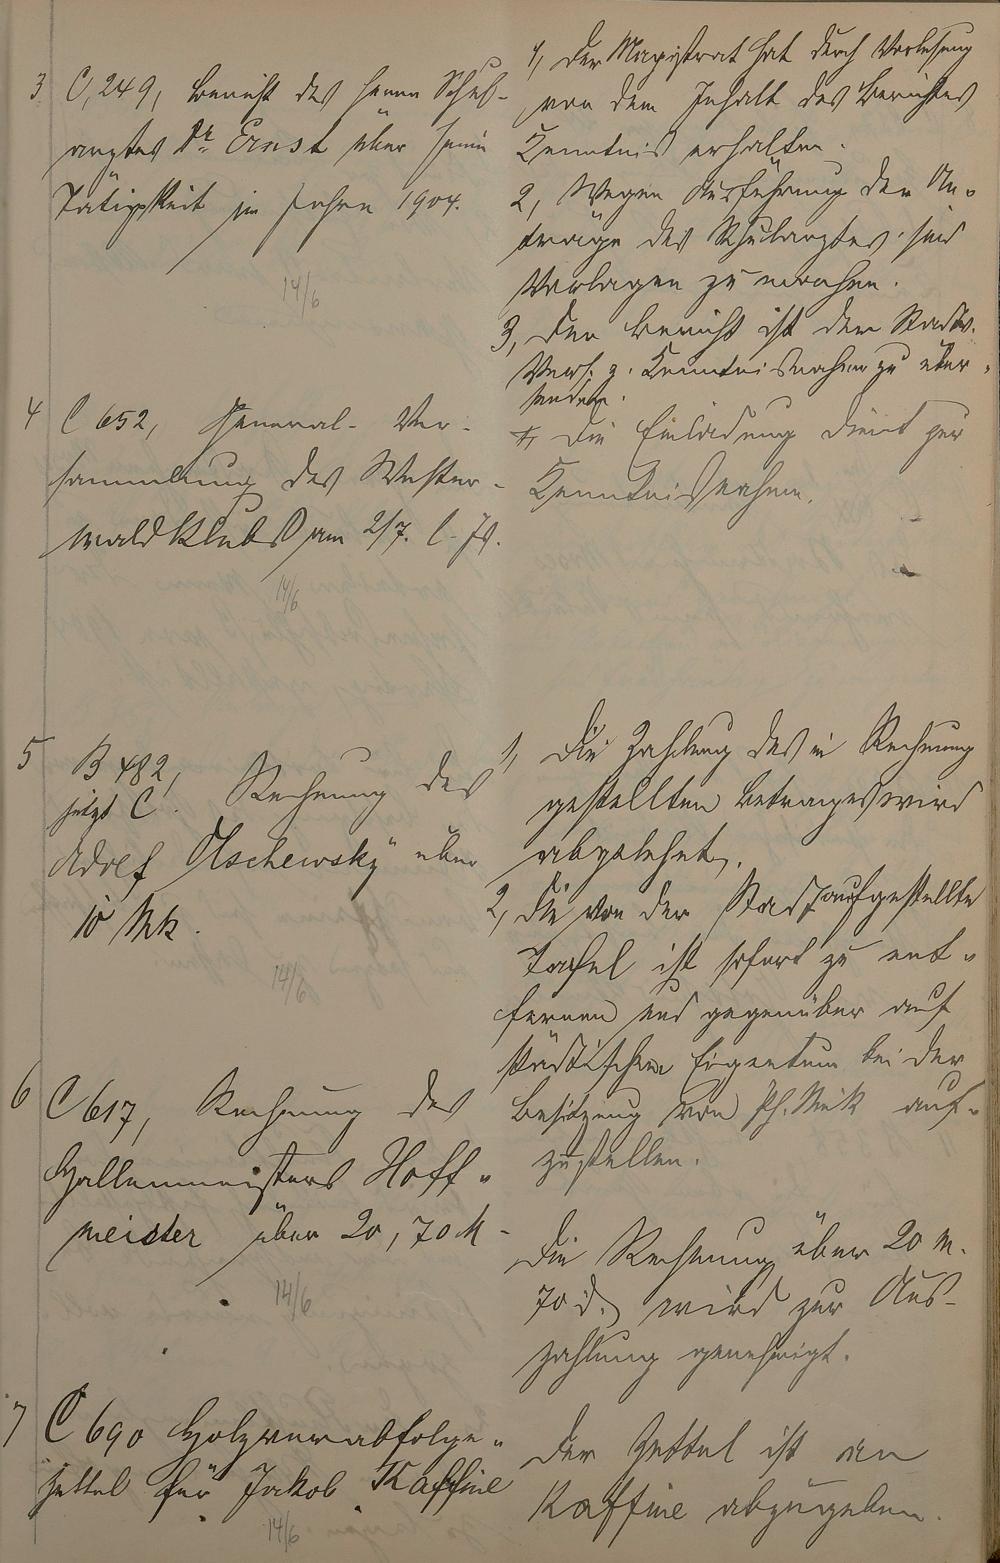 3 C, 249, Bericht des Herrn Schul-
arztes Dr. Ernst über seine
Tätigkeit im Jahre 1904.
14/6
1, Der Magistrat hat durch Vorlesung
von dem Inhalt des Berichtes
Kenntnis erhalten.
2, Wegen Ausführung der An-
träge des Schularztes sind
Vorlagen zu machen.
3, Der Bericht ist der Stadtv.
Vers. z. Kenntnisnahme zu über-
senden.
4 C 652, General-Ver-
sammlung des Wester-
waldklubs am 2/7. l. Js.
14/6
Die Einladung dient zur
Kenntnisnahme.
5 B 482,
jetzt C. Rechnung des
Adolf Olschewsky über
10 Mk.
14/6
1, Die Zahlung des in Rechnung
gestellten Betrages wird
abgelehnt.
2, Die von der Stadt aufgestellte
Tafel ist sofort zu ent-
fernen und gegenüber auf
städtischem Eigentum bei der
Besitzung von Ph. auf-
zustellen.
6 C 617, Rechnung des
Hallenmeisters Hoff-
meister über 20,70 M
14/6
Die Rechnung über 20 M.
70 d. wird zur Aus-
zahlung genehmigt.
7 C 690 Holzverabfolge-
zettel für Jakob Kaffine
14/6
Der Zettel ist an
Kaffine abzugeben.